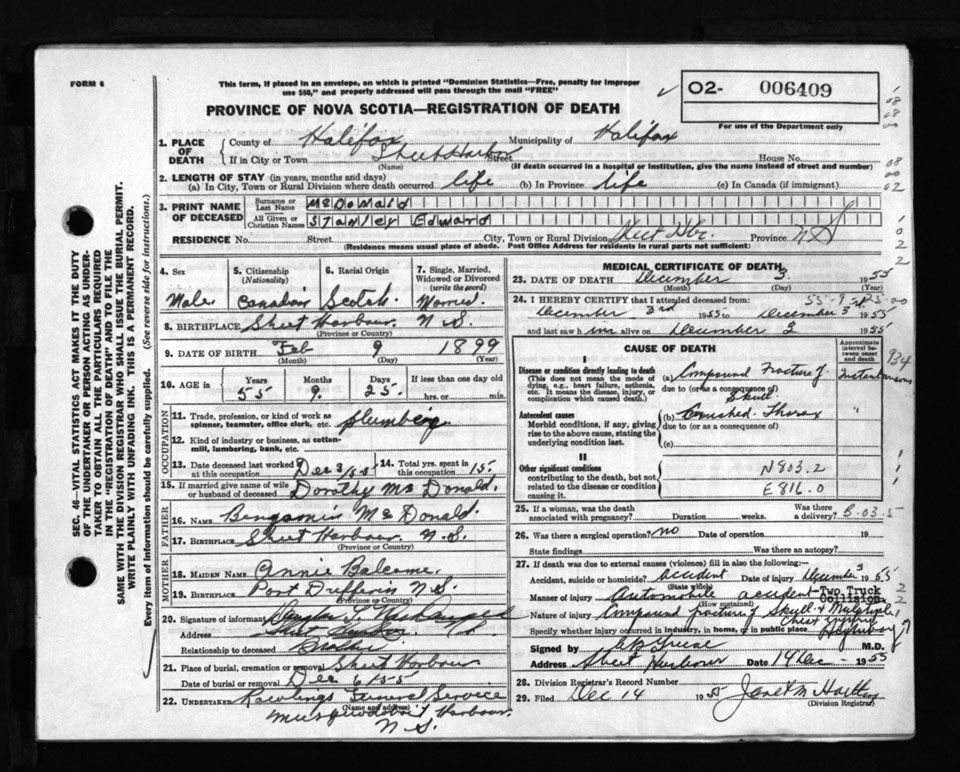 FORM 6
This form, if placed in an envelope, on which is printed "Dominion Statistics—Free, penalty for improper
use $50," and properly addressed will pass through the mail "FREE"
O2- 006409
For use of the Department only
PROVINCE OF NOVA SCOTIA—REGISTRATION OF DEATH
1. PLACE OF DEATH
County of Halifax Municipality of Halifax
If in City or Town Sheet Harbor Street House No.
(Name) (If death occurred in a hospital or institution, give the name instead of street and number)
2. LENGTH OF STAY (in years, months and days)
(a) In City, Town or Rural Division where death occurred life (b) In Province life (c) In Canada (if immigrant)
3. PRINT NAME OF DECEASED
Surname or Last Name McDonald
All Given or Christian Names Stanley Edward
RESIDENCE No. Street City, Town or Rural Division Sheet Hbr. Province N S
(Residence means usual place of abode. Post Office Address for residents in rural parts not sufficient)
SEC. 46—VITAL STATISTICS ACT MAKES IT THE DUTY
OF THE UNDERTAKER OR PERSON ACTING AS UNDER-
TAKER TO OBTAIN ALL THE PARTICULARS REQUIRED
IN THE "REGISTRATION OF DEATH" AND TO FILE THE
SAME WITH THE DIVISION REGISTRAR WHO SHALL ISSUE THE BURIAL PERMIT.
WRITE PLAINLY WITH UNFADING INK. THIS IS A PERMANENT RECORD.
Every item of information should be carefully supplied. (See reverse side for instructions.)
4. Sex Male
5. Citizenship (Nationality) Canadian
6. Racial Origin Scotch
7. Single, Married, Widowed or Divorced (write the word) Married
8. BIRTHPLACE Sheet Harbour N S.
(Province or Country)
9. DATE OF BIRTH Feb 9 1899
(Month) (Day) (Year)
10. AGE in Years 55 Months 9 Days 25 If less than one day old hrs. or min.
OCCUPATION
11. Trade, profession, or kind of work as
spinner, teamster, office clerk, etc. plumbing
12. Kind of industry or business, as cotton-
mill, lumbering, bank, etc.
13. Date deceased last worked at this occupation Dec 3/55
14. Total yrs. spent in this occupation 15.
15. If married give name of wife
or husband of deceased Dorothy McDonald.
FATHER
16. NAME Benjamin McDonald.
17. BIRTHPLACE Sheet Harbour N.S.
(Province or Country)
MOTHER
18. MAIDEN NAME Annie Balcome.
19. BIRTHPLACE Port Dufferin N S.
(Province or Country)
20. Signature of informant
Address
Relationship to deceased
21. Place of burial, cremation or removal Sheet Harbour
Date of burial or removal Dec 6/55
22. UNDERTAKER Rawlings Funeral Service
(Name and address)
Musquodoboit Harbour.
N S.
MEDICAL CERTIFICATE OF DEATH
23. DATE OF DEATH December 3 1955
(Month) (Day) (Year)
24. I HEREBY CERTIFY that I attended deceased from:
December 3rd 1955 to December 3 1955
and last saw him alive on December 3 1955
CAUSE OF DEATH
Approximate interval between onset and death
I
Disease or condition directly leading to death
(This does not mean the mode of dying, e.g., heart failure, asthenia, etc. It means the disease, injury, or complication which caused death.)
(a) Compound Fracture of Skull Instantaneous
due to (or as a consequence of)
Antecedent causes
Morbid conditions, if any, giving rise to the above cause, stating the underlying condition last.
(b) Crushed Thorax "
due to (or as a consequence of)
(c)
934
II
Other significant conditions
contributing to the death, but not related to the disease or condition causing it.
N803.2
E816.0
25. If a woman, was the death associated with pregnancy? Duration weeks. Was there a delivery? B-03-5
26. Was there a surgical operation? no Date of operation 19
State findings Was there an autopsy?
27. If death was due to external causes (violence) fill in also the following:—
Accident, suicide or homicide? accident Date of injury December 3 1955
(State which)
Manner of injury Automobile accident-Two Truck Collision
(How sustained)
Nature of injury Compound fracture of Skull & Multiple Chest injury
Specify whether injury occurred in industry, in home, or in public place Highway
Signed by M.D.
Address Sheet Harbour Date 14 Dec - 1955
28. Division Registrar's Record Number
29. Filed Dec 14 1955
(Division Registrar)